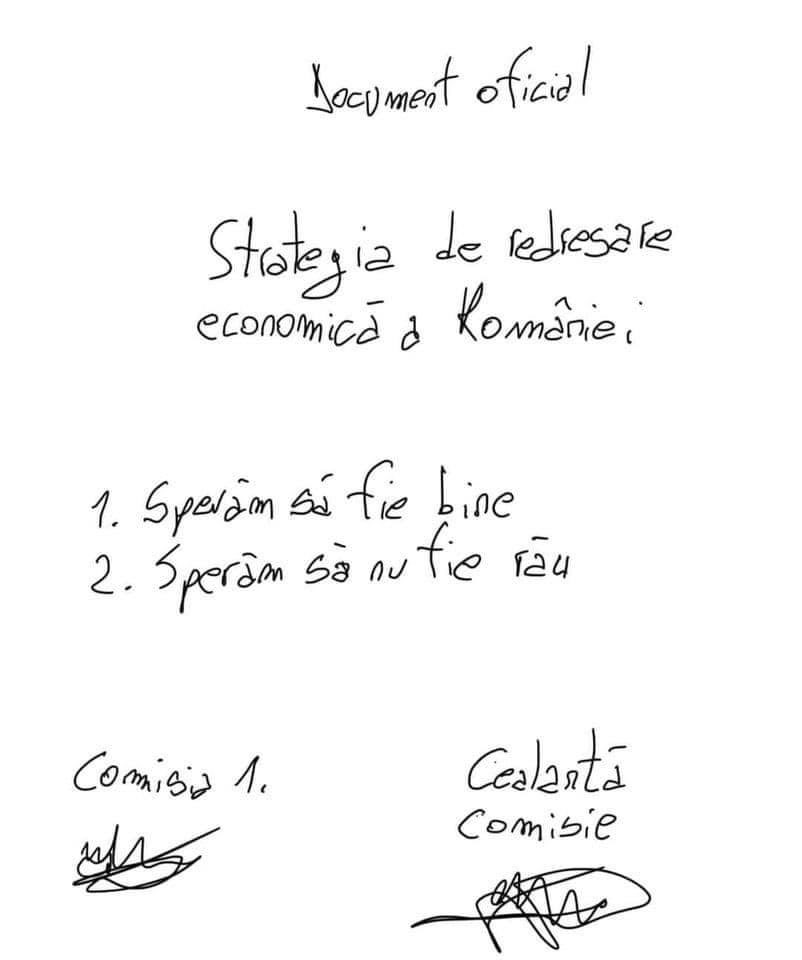 Document oficial
Strategia de redresare
economică a României
1. Sperăm să fie bine
2. Sperăm să nu fie rău
Comisia 1.
Cealantă
comisie